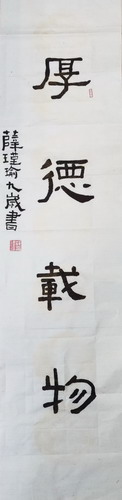 厚德載物
薛瑾瑜九歲書